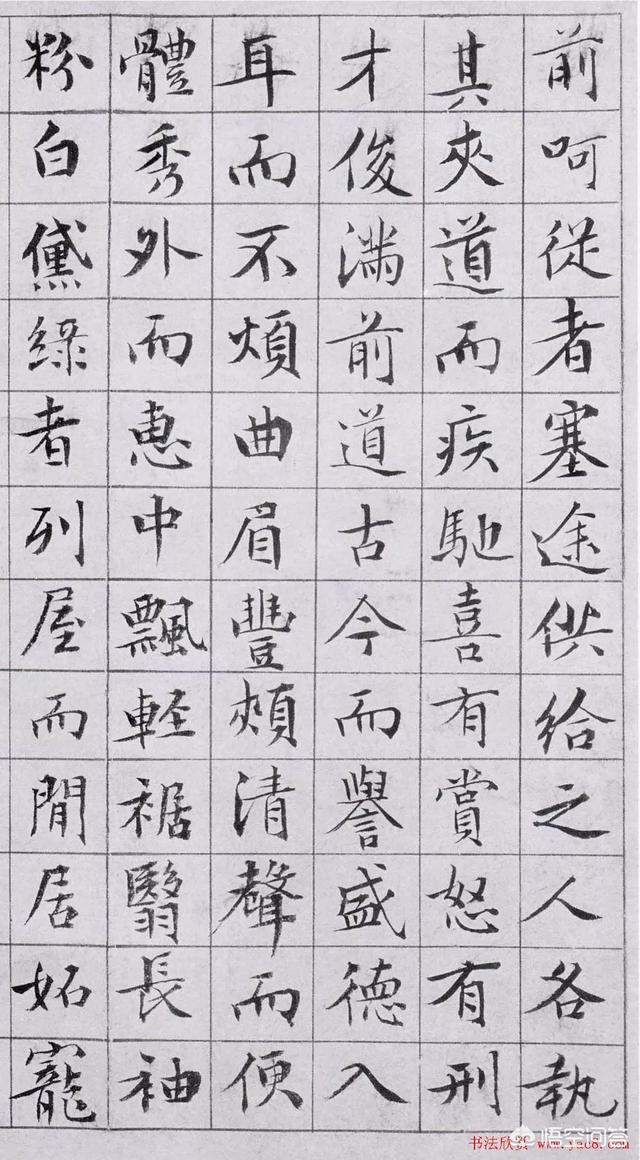 前呵從者塞途供給之人各執
其夾道而疾馳喜有賞怒有刑
才俊滿前道古今而譽盛德入
耳而不煩曲眉豐頰清聲而便
體秀外而惠中飄輕裾翳長袖
粉白黛綠者列屋而閒居妬寵
悟空问答
书法欣赏 www.yac8.com